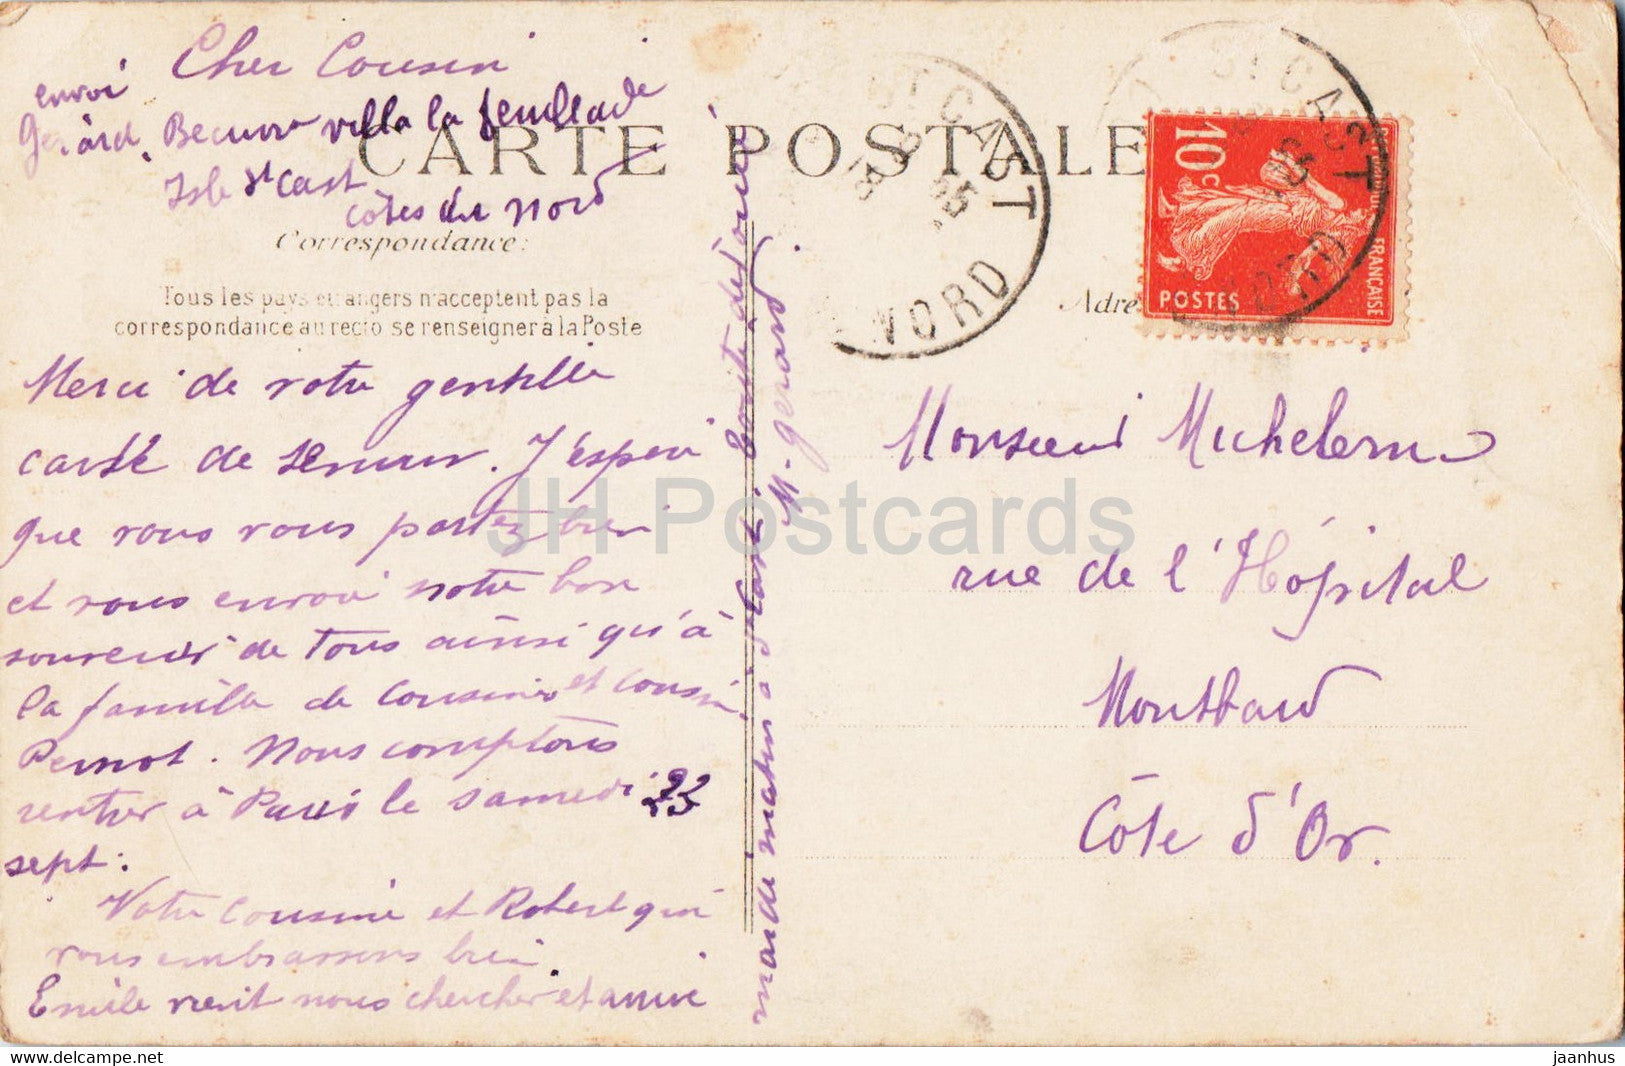 Cher Cousin
envoi
Gerard. Becuwe villa la feuillade
Isle St Cast
Côtes du Nord
CARTE POSTALE
Correspondance:
Tous les pays etrangers n'acceptent pas la
correspondance au recto se renseigner à la Poste
Merci de votre gentille
carte de Semur. J'espère
que vous vous portez bien
et vous envoi notre bon
souvenir de tous ainsi qu'à
la famille de Cousine et Cousin
Pernot. Nous comptons
rentrer à Paris le samedi 23
sept:
Votre cousine et Robert qui
vous embrassons bien.
Emile vient nous chercher et arrive
mardi matin à St Cast. Bonite de
M. gerard
ST CAST
NORD
10c
POSTES
FRANÇAISE
ST CAST
NORD
Adre
Monsieur
rue de l'Hôpital
Montbard
Côte d'Or.
JH Postcards
www.delcampe.net
jaanhus